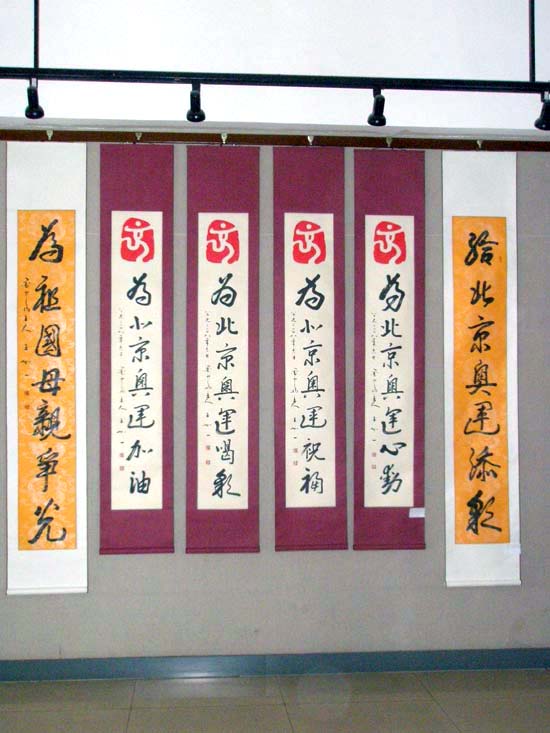 給北京奧運添彩
為北京奧運心動
為北京奧運祝福
為北京奧運喝彩
為北京奧運加油
為祖國母親爭光